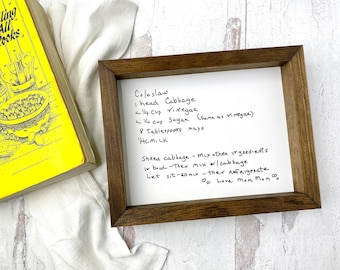 ling
All
ooks
Coleslaw
1 head Cabbage
~ 1/4 cup vinegar
~ 1/4 cup Sugar (same as vinegar)
8 tablespoons mayo
Shred cabbage - mix other ingredients
in bowl - Then mix w/ cabbage
Let sit - remix - then refrigerate
Love mom mom